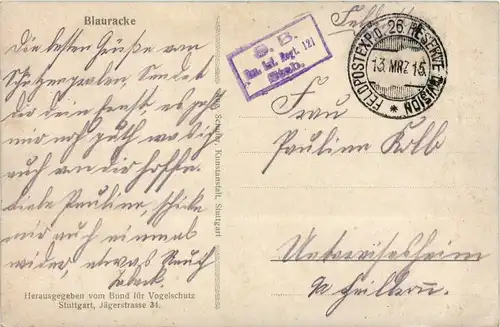 Blauracke
Die besten Grüße von
Schützengraben, Sendet
dir dein Ernst, es geht
mir noch guth was ich
auch von dir hoffe.
Liebe Pauline, schicke
mir auch einmal
wieder etwas Rauch
Taback.
Herausgegeben vom Bund für Vogelschutz
Stuttgart, Jägerstrasse 34.
Kunstanstalt, Stuttgart
S. B.
Res. Inf. Regt. 121
FELDPOSTEXP. D. 26 RESERVE DIVISION
13 MRZ 15
Frau
Pauline Kolb
Untereisesheim
Heilbronn.